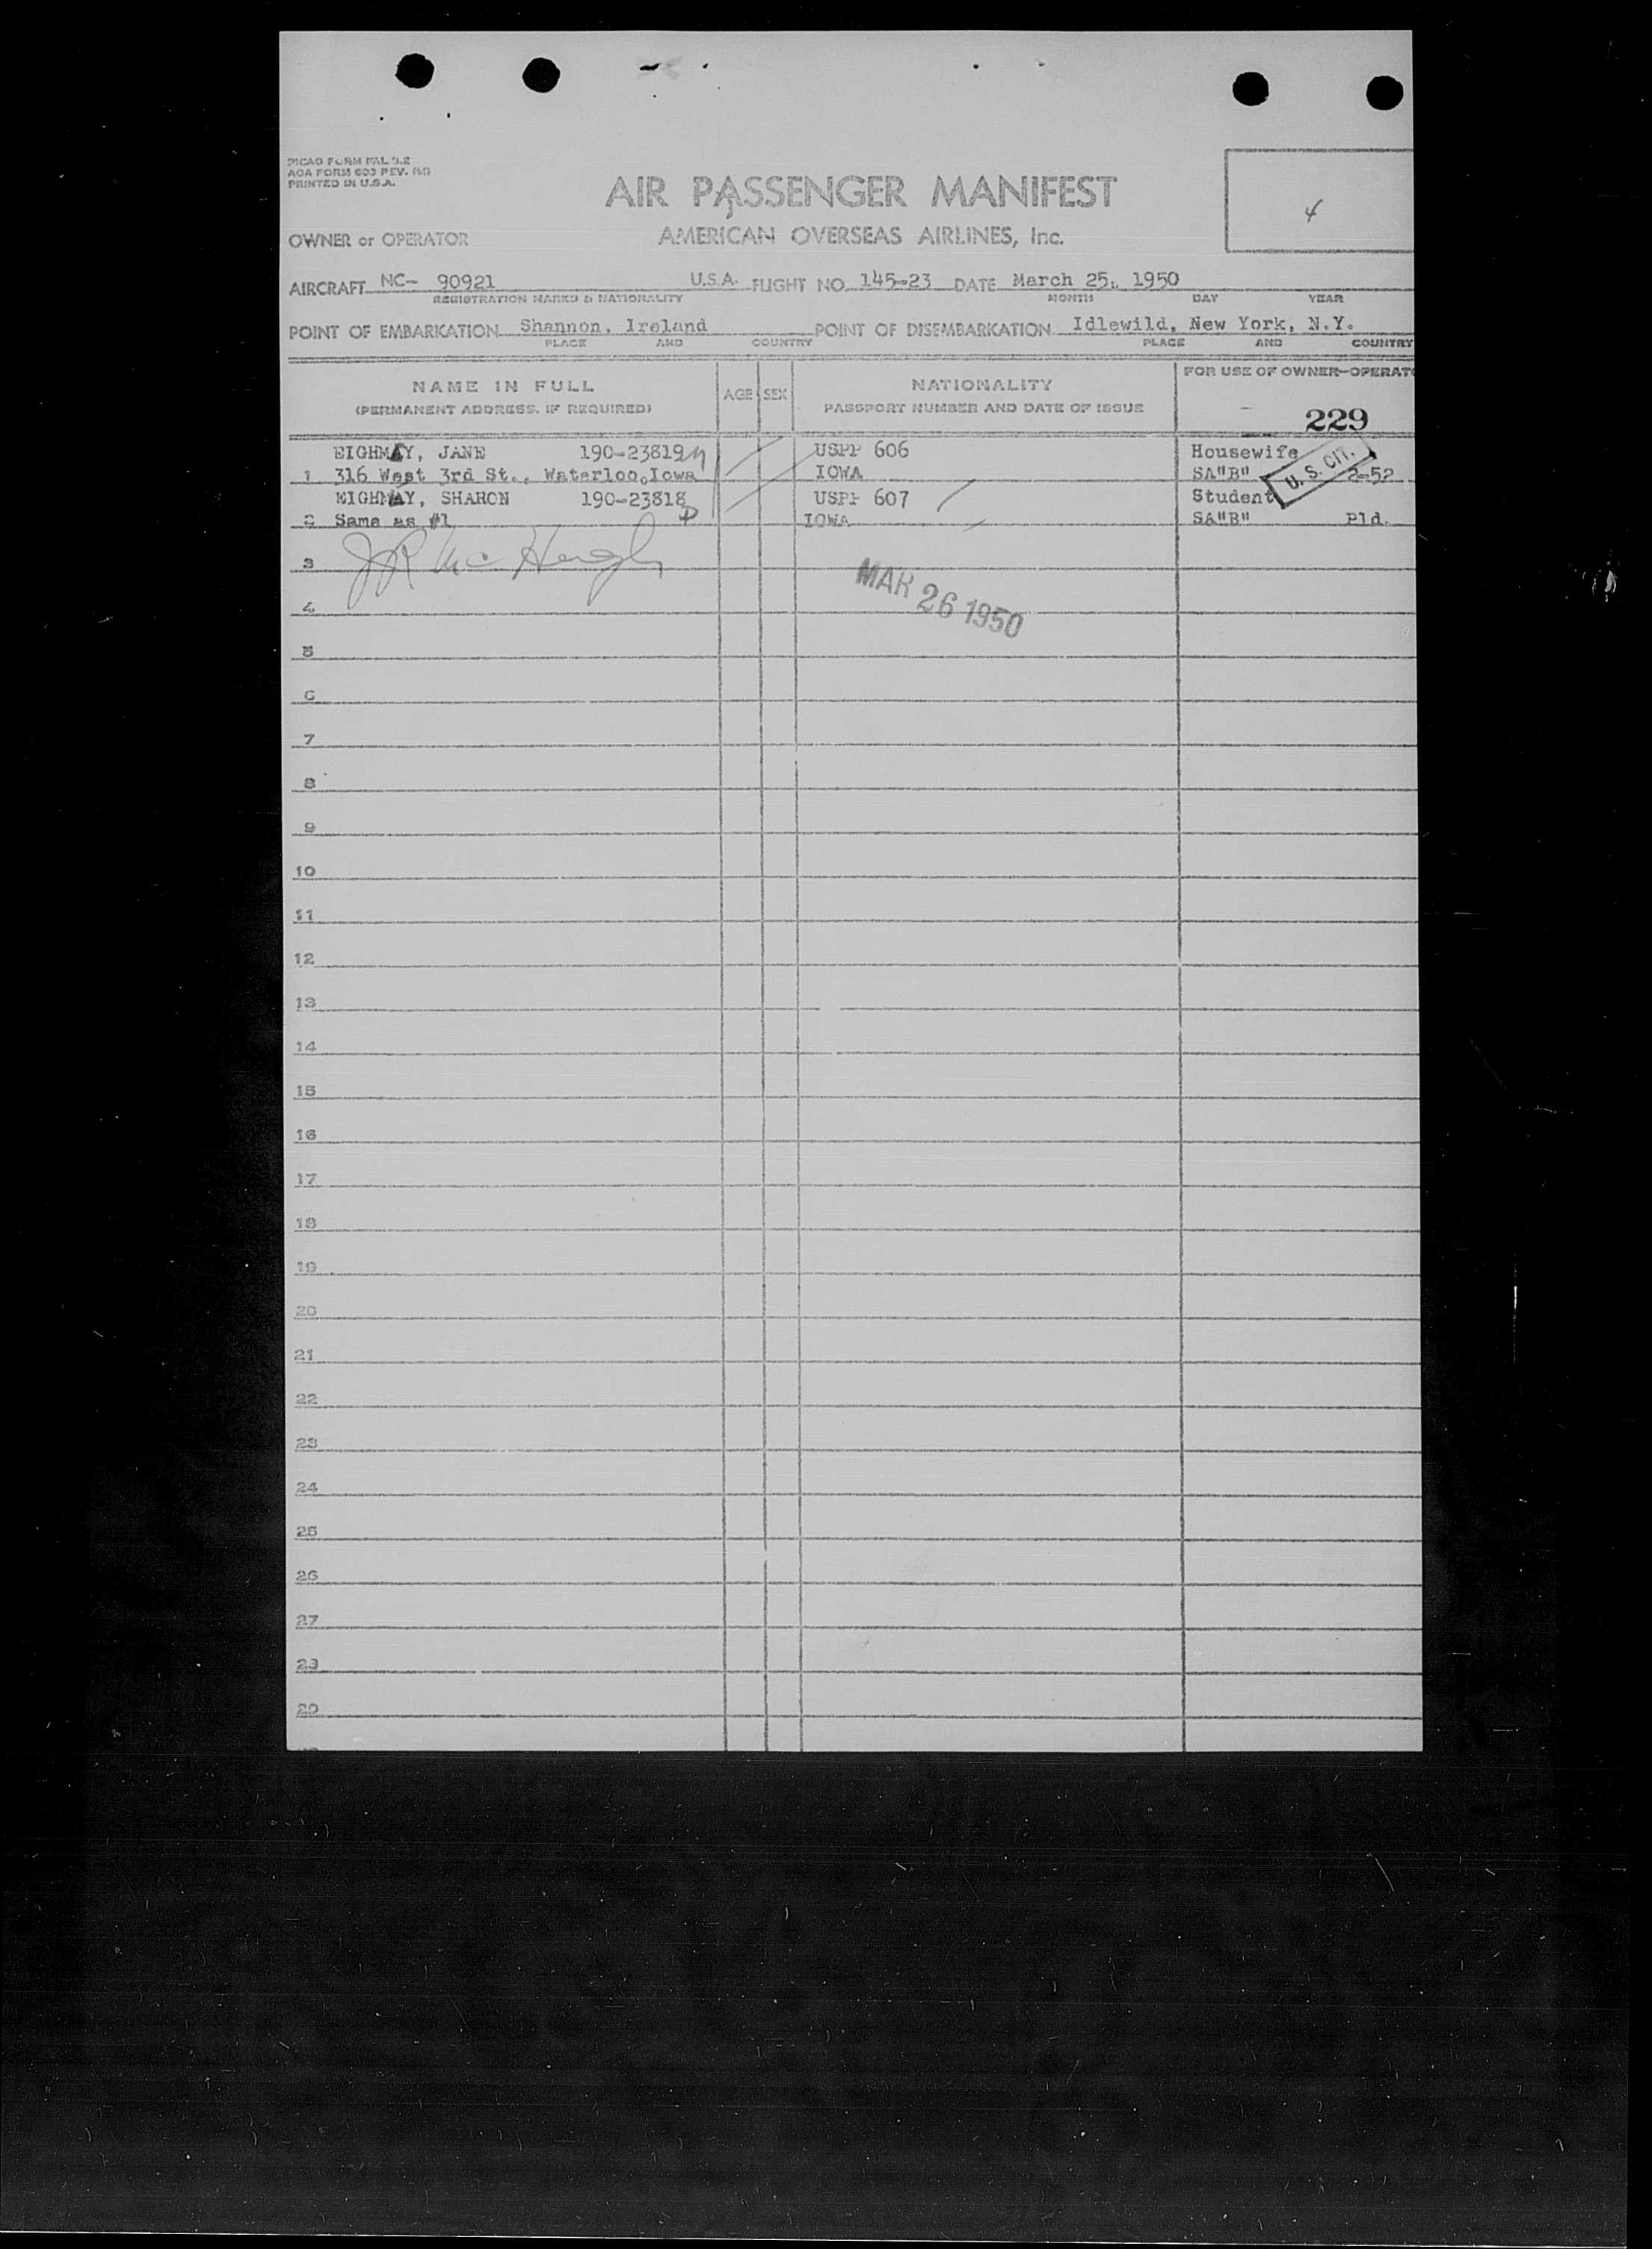 PICAO FORM FAL 3.2
AOA FORM 603 REV.
PRINTED IN U.S.A.
AIR PASSENGER MANIFEST
4
OWNER or OPERATOR AMERICAN OVERSEAS AIRLINES, Inc.
AIRCRAFT NC- 90921 U.S.A. FLIGHT NO. 145-23 DATE March 25, 1950
REGISTRATION MARKS & NATIONALITY MONTH DAY YEAR
POINT OF EMBARKATION Shannon, Ireland POINT OF DISEMBARKATION Idlewild, New York, N.Y.
PLACE AND COUNTRY PLACE AND COUNTRY
NAME IN FULL AGE SEX NATIONALITY FOR USE OF OWNER-OPERATO
(PERMANENT ADDRESS, IF REQUIRED) PASSPORT NUMBER AND DATE OF ISSUE
229
EIGHMAY, JANE 190-23819 USPP 606 Housewife
1 316 West 3rd St., Waterloo, Iowa IOWA SA"B" 2-52
U. S. CIT.
EIGHMAY, SHARON 190-23818 USPP 607 Student
2 Same as #1 IOWA SA"B" Pld.
3
MAR 26 1950
4
5
6
7
8
9
10
11
12
13
14
15
16
17
18
19
20
21
22
23
24
25
26
27
28
29